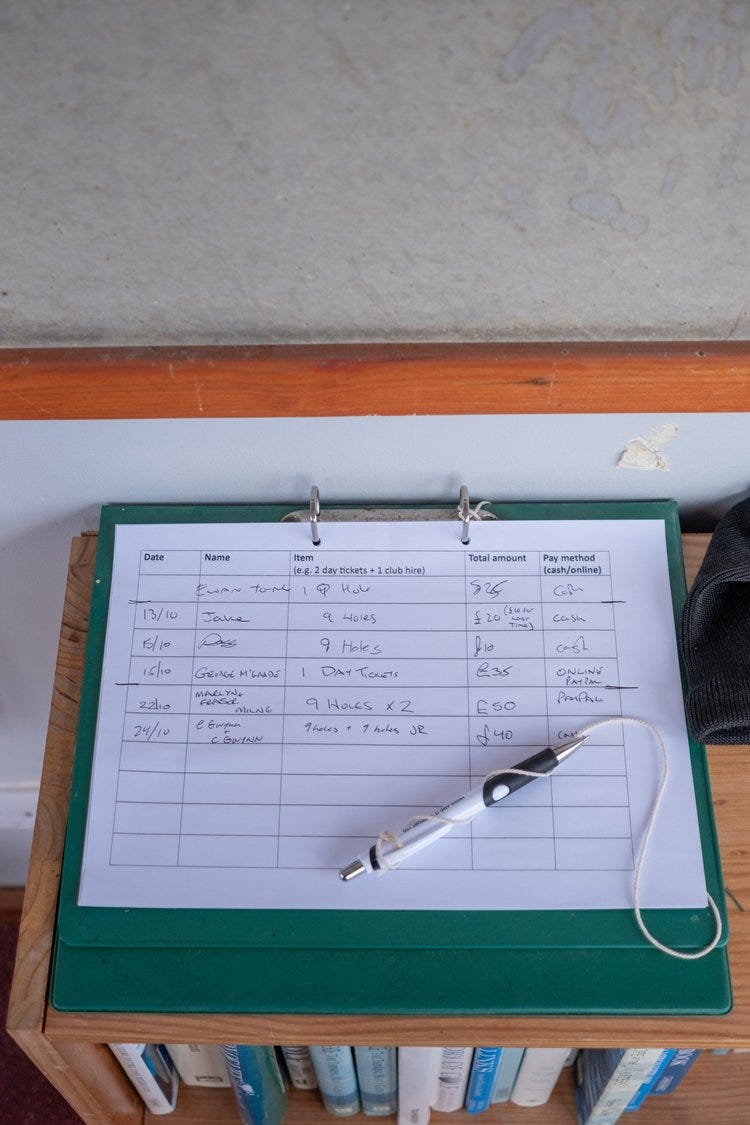 Date Name Item Total amount Pay method
(e.g. 2 day tickets + 1 club hire) (cash/online)
Ewan 1 9 Hole £25 Cash
13/10 Jake 9 Holes £20 (£10 for last time) cash
15/10 9 Holes £10 cash
15/10 GEORGE M'GRADE 1 DAY TICKETS £35 ONLINE PAYPAL
22/10 MARLYN+ FRASER MILNE 9 HOLES X 2 £50 PAYPAL
24/10 C Gwynn + C GWYNN 9 holes + 9 holes JR £40 cash